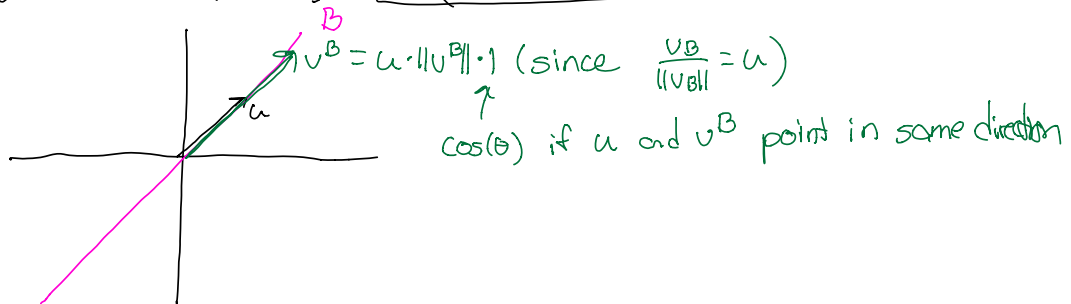 B
v^B = u·||v^B||·1 (since v_B/||v_B|| = u)
u
↑
cos(θ) if u and v^B point in same direction